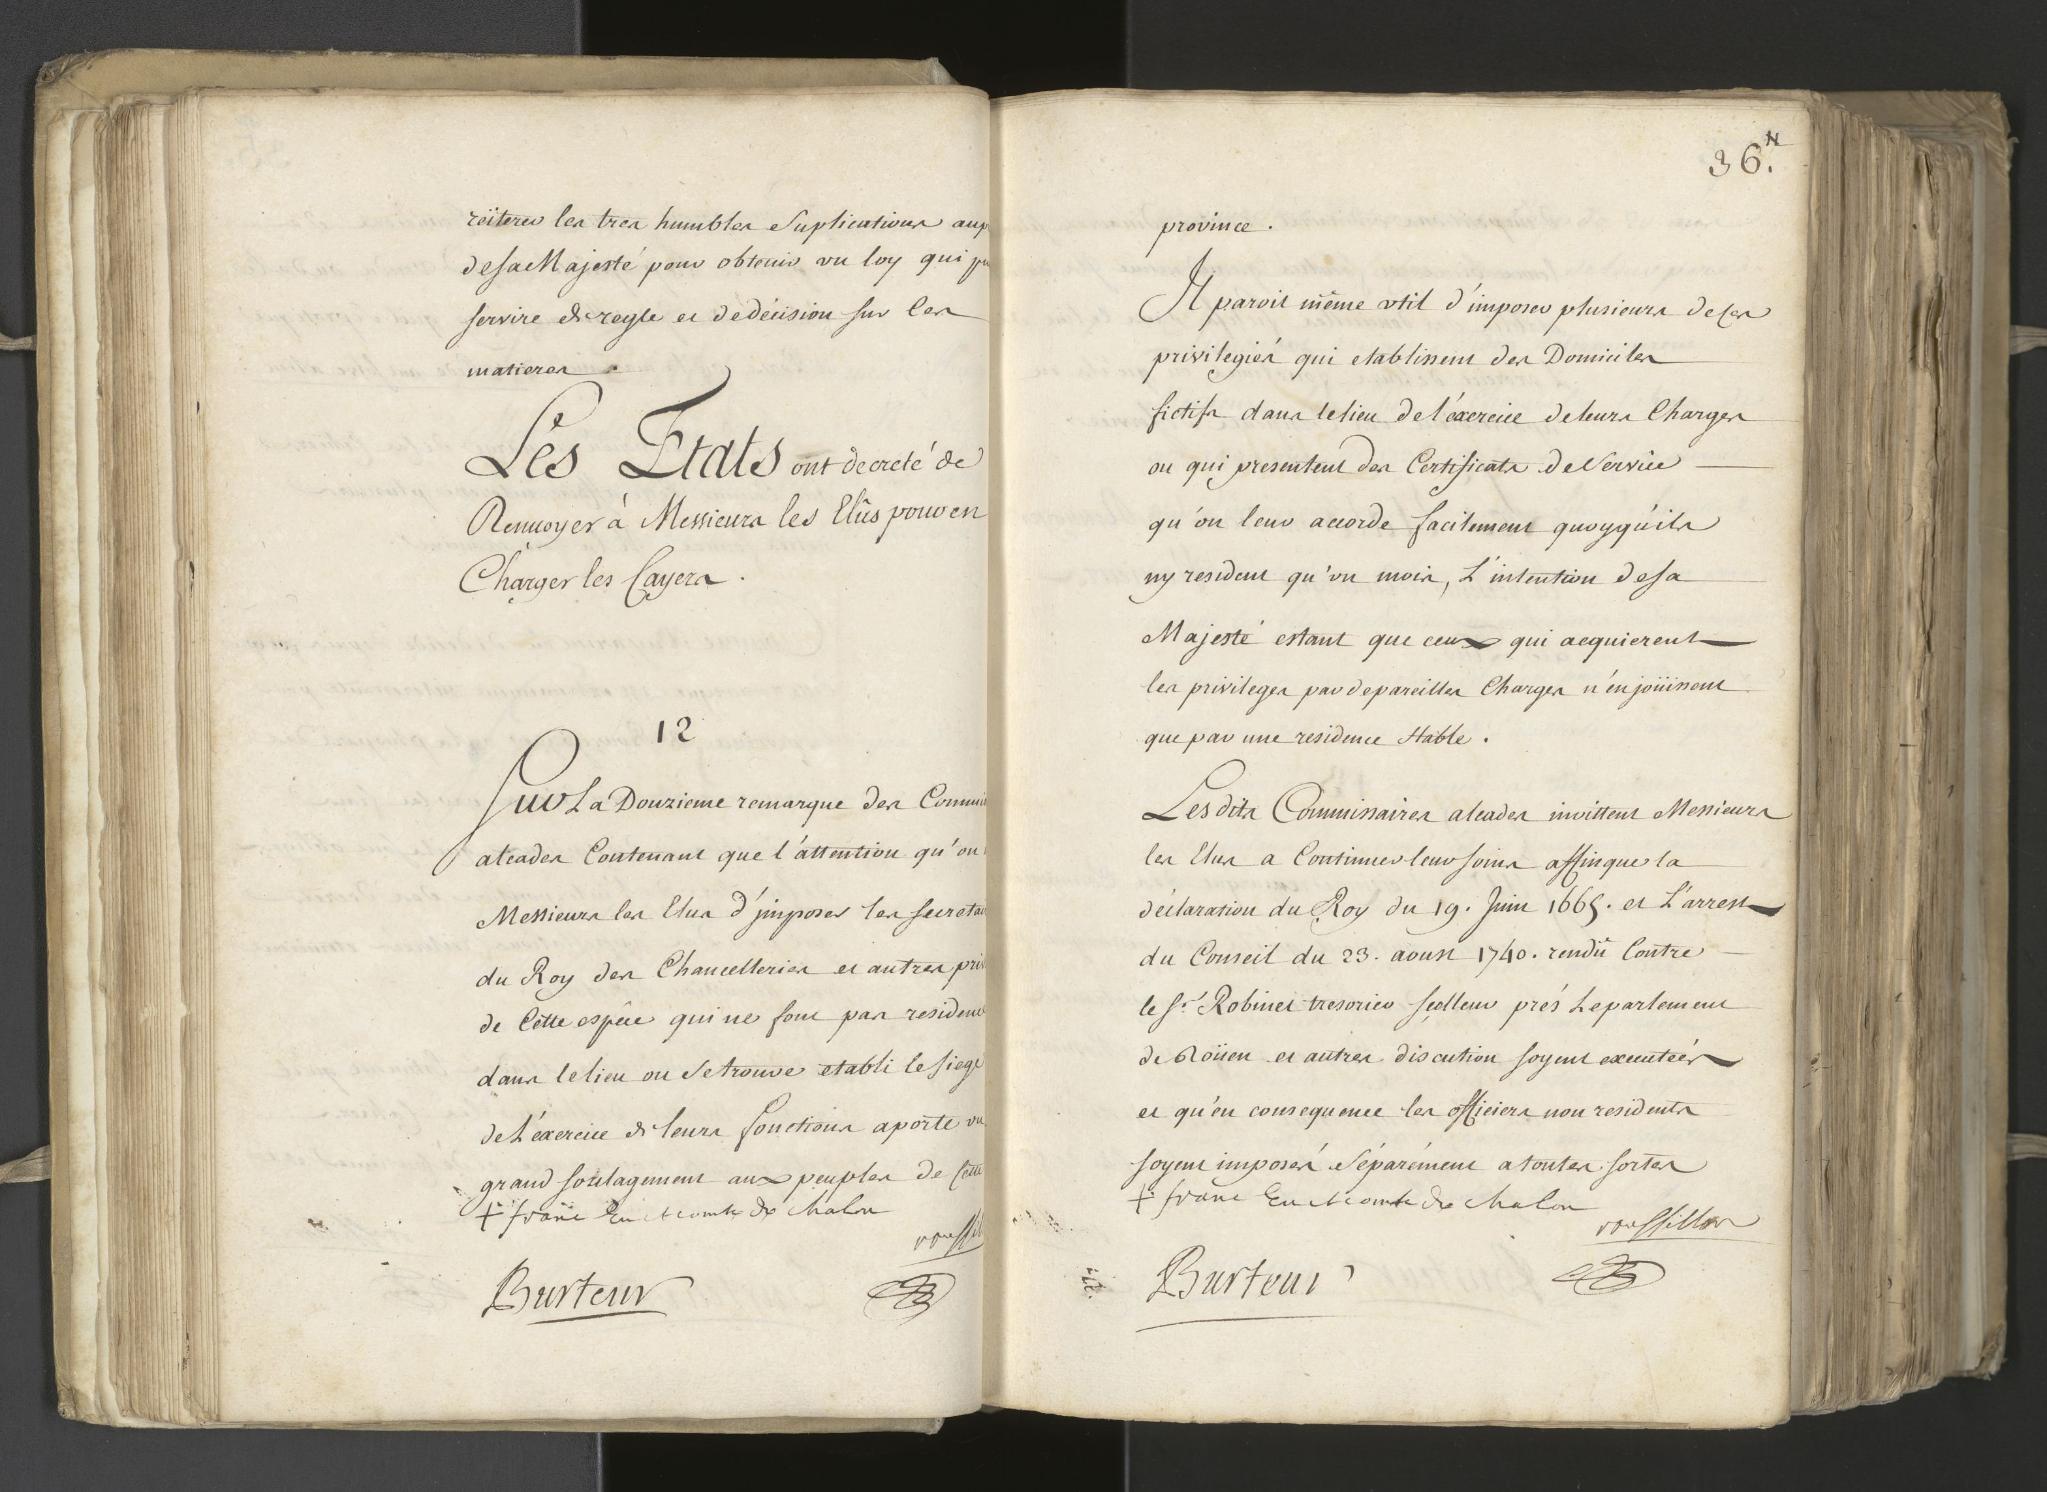 réiterer les tres humbles Suplications aup
de sa Majesté pour obtenir un loy qui pu
servire de regle et de décision sur les
matieres .
Les Etats ont decreté de
Renuoyer à Messieurs les Elûs pour en
Charger les Cayers .
12
Sur La Douzieme remarque des Commis
alcades Contenant que l'attention qu'on
Messieurs les Elus d'jmposer les secretai
du Roy des Chancelleries et autres priv
de Cette espêce qui ne font pas residence
dans le lieu ou Se trouve etabli le siege
de L'éxercice de leurs fonctions aporte un
grand soulagement aux peuples de Cette
+ franc eu et comte de chalon
roussil
Burteur
36.
province .
Il paroit même util d'imposer plusieurs de Ces
privilegiés qui etablissent des Domiciles
fictifs dans le lieu de l'éxercice de leurs Charges
ou qui presentent des Certificats de Service
qu'on leur accorde facilement quoyqu'ils
ny resident qu'un mois, L'intention de sa
Majesté estant que ceux qui acquierent
les privileges par de pareilles Charges n'en joüissent
que par une residence Stable .
Les dits Commissaires alcades invittent Messieurs
les Elus a Continuer leur soins affin que la
déclaration du Roy du 19. Juin 1665. et L'arrest
du Conseil du 23. aoust 1740. rendû Contre
le Sr. Robinet tresorier scelleur prés Le parlement
de Roüen et autres discution soyent executeés
et qu'en consequence les officiers non residents
soyent imposés Séparément a toutes sortes
+ franc eu et comte de chalon
roussillon
Burteur